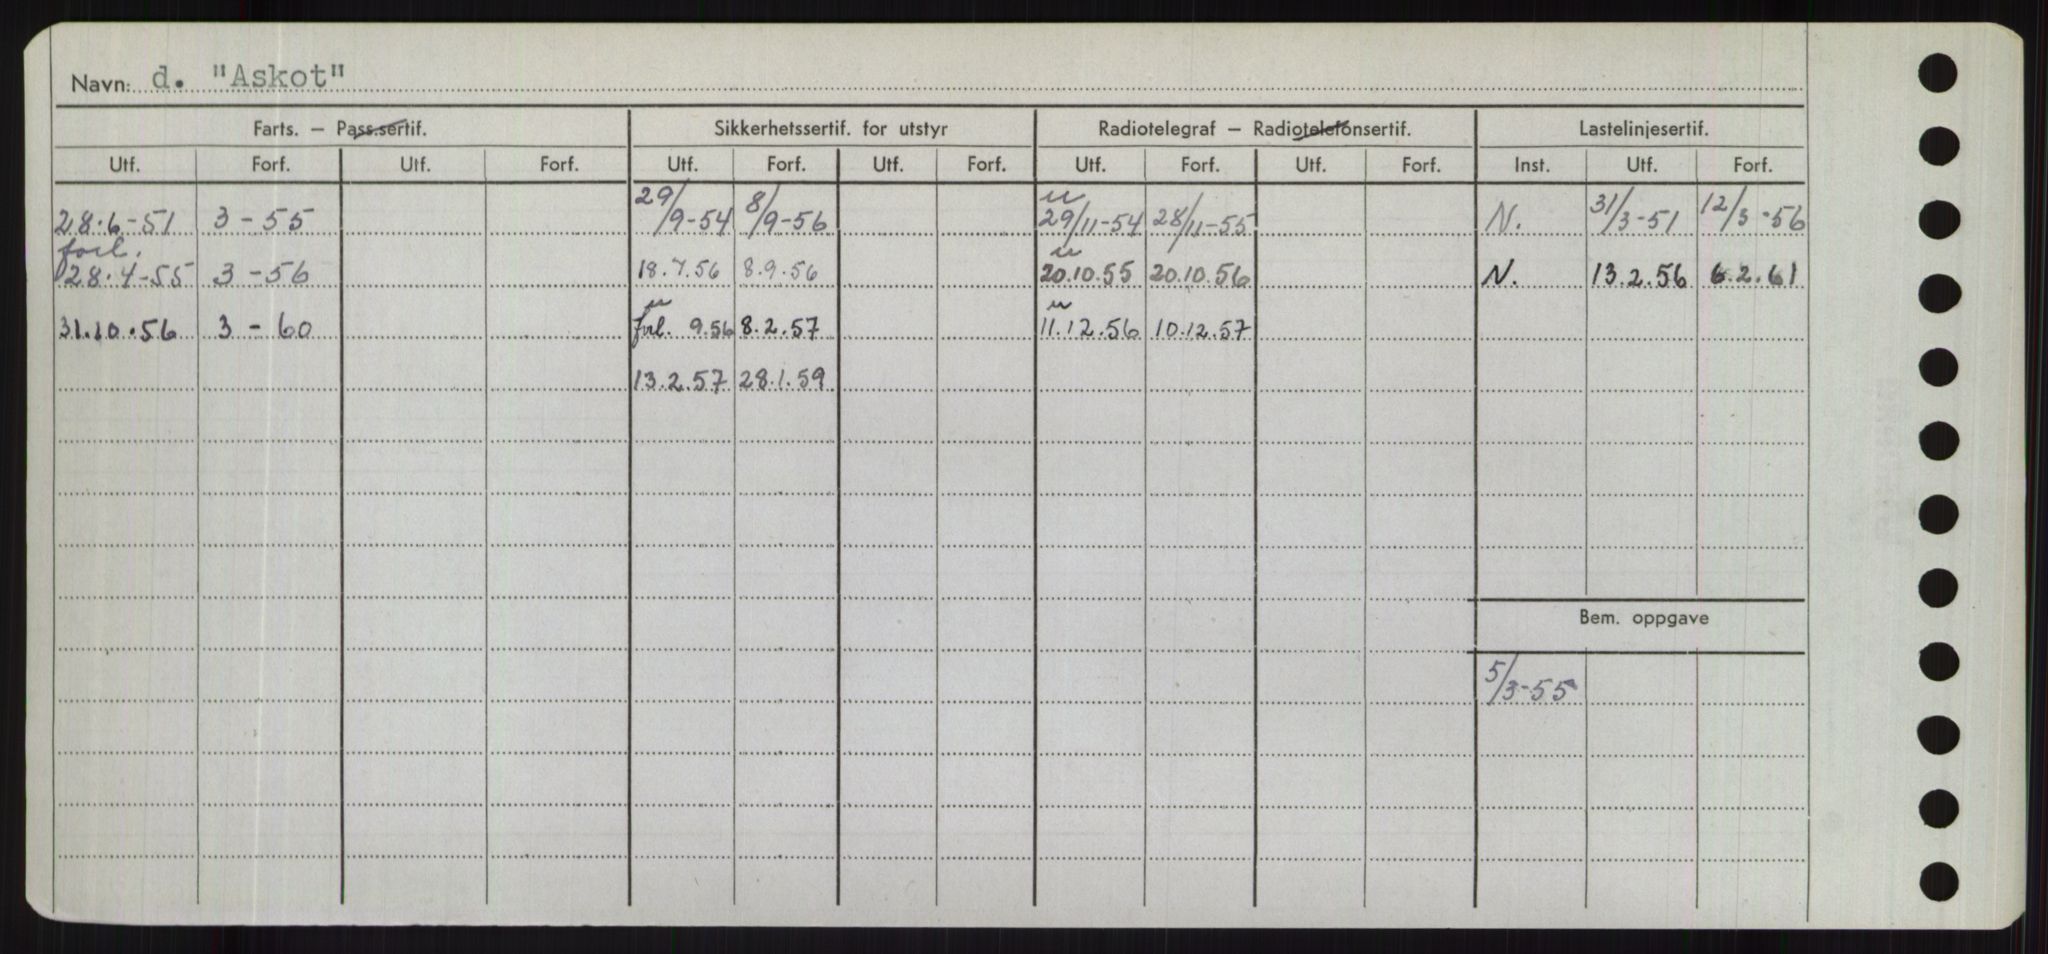 Navn: d. "Askot"
Farts. – Pass.sertif. Sikkerhetssertif. for utstyr Radiotelegraf – Radiotelefonsertif. Lastelinjesertif.
Utf. Forf. Utf. Forf. Utf. Forf. Utf. Forf. Utf. Forf. Utf. Forf. Inst. Utf. Forf.
28.6-51 3-55 29/9-54 8/9-56 u 29/11-54 28/11-55 N. 31/3-51 12/3-56
forl. 28.4-55 3-56 18.7.56 8.9.56 u 20.10.55 20.10.56 N. 13.2.56 6.2.61
31.10.56 3-60 u forl. 9.56 8.2.57 u 11.12.56 10.12.57
13.2.57 28.1.59
Bem. oppgave
5/3-55